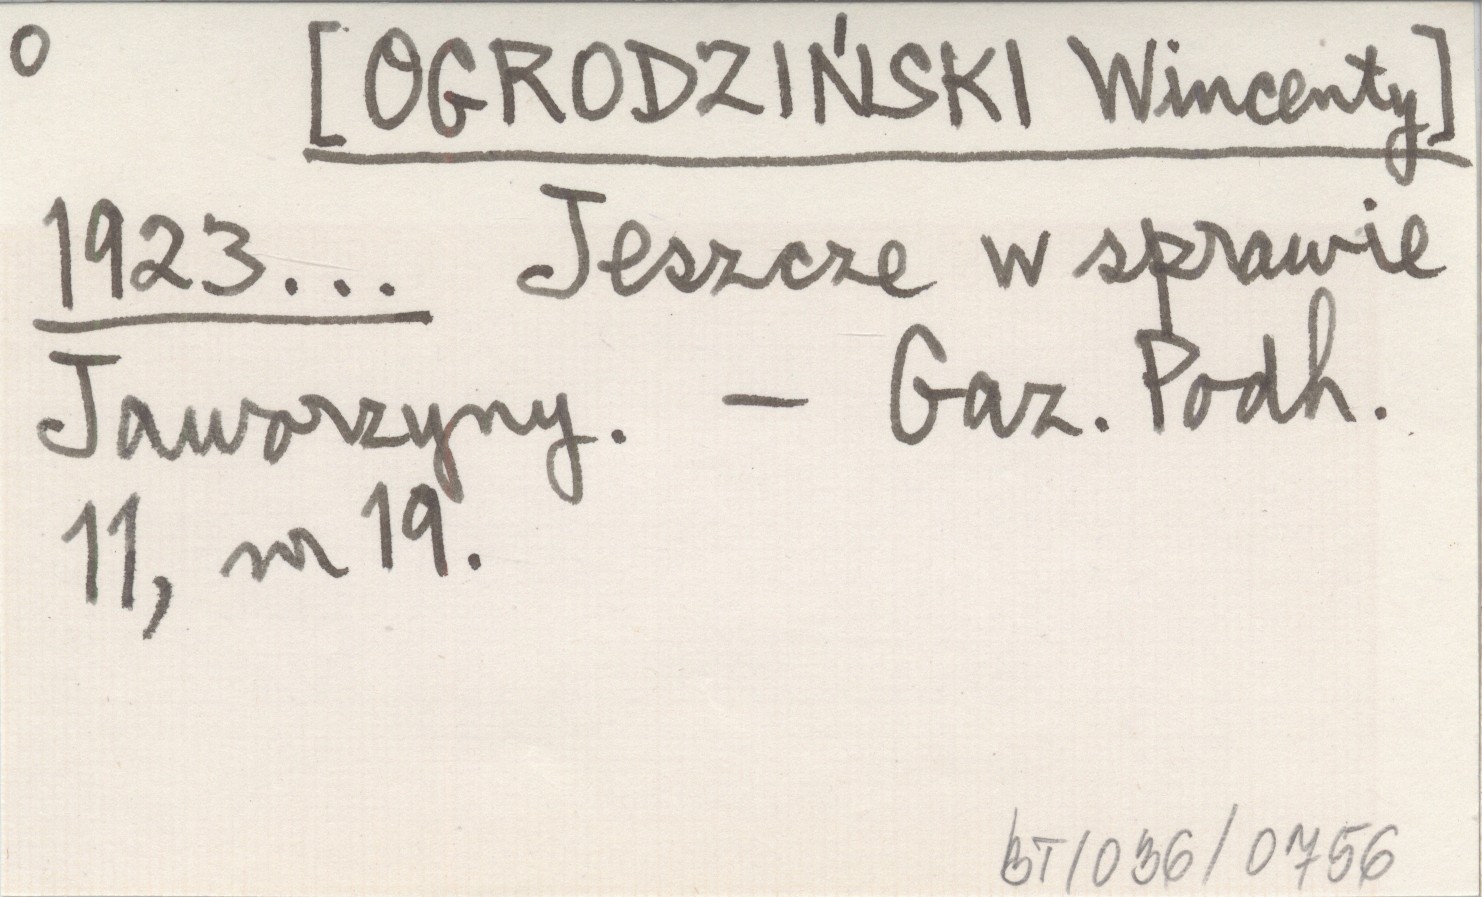 O [OGRODZIŃSKI Wincenty]
1923... Jeszcze w sprawie
Jaworzyny. — Gaz. Podh.
11, nr 19.
BT/036/0756